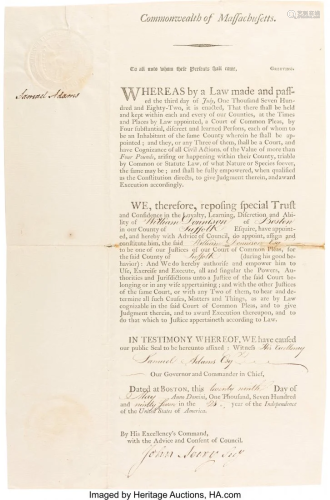 Commonwealth of Massachusetts.
To all unto whom these Presents shall come, GREETING.
Samuel Adams
WHEREAS by a Law made and pass-
ed the third day of July, One Thousand Seven Hund
red and Eighty-Two, it is enacted, That there shall be
held and kept within each and every of our Counties, at the Times
and Places by Law appointed, a Court of Common Pleas, by
Four substantial, discreet and learned Persons, each of whom to
be an Inhabitant of the same County wherein he shall be ap-
pointed; and they, or any Three of them, shall be a Court, and
have Cognizance of all Civil Actions, of the Value of more than
Four Pounds, arising or happening within their County, triable
by Common or Statute Law, of what Nature or Species soever
the same may be; and shall be fully empowered, when qualified
as the Constitution directs, to give Judgment therein, and award
Execution accordingly.
WE, therefore, reposing special Trust
and Confidence in the Loyalty, Learning, Discretion and Abi-
lity of William Donnison of Boston
in our County of Suffolk Esquire, have appoint-
ed, and hereby with Advice of Council, do appoint, assign and
constitute him, the said William Donnison Esq
to be one of our Justices of our Court of Common Pleas, for
the said County of Suffolk (during his good be-
havior): And We do hereby authorise and empower him to
Use, Exercise and Execute, all and singular the Powers, Au-
thorities and Jurisdictions unto a Justice of the said Court be-
longing or in any wise appertaining; and with the other Justices
of the same Court, or with any Two of them, to hear and de-
termine all such Causes, Matters and Things, as are by Law
cognizable in the said Court of Common Pleas, and to give
Judgment therein, and to award Execution thereupon, and to
do that which to Justice appertaineth according to Law.
IN TESTIMONY WHEREOF, WE have caused
our public Seal to be hereunto affixed: Witness His Excellency
Samuel Adams Esqr
Our Governor and Commander in Chief,
Dated at BOSTON, this twenty ninth Day of
May Anno Domini, One Thousand, Seven Hundred
and ninety year of the Independence
of the United States of America.
By His Excellency's Command,
with the Advice and Consent of Council.
John Avery
Imaged by Heritage Auctions, HA.com